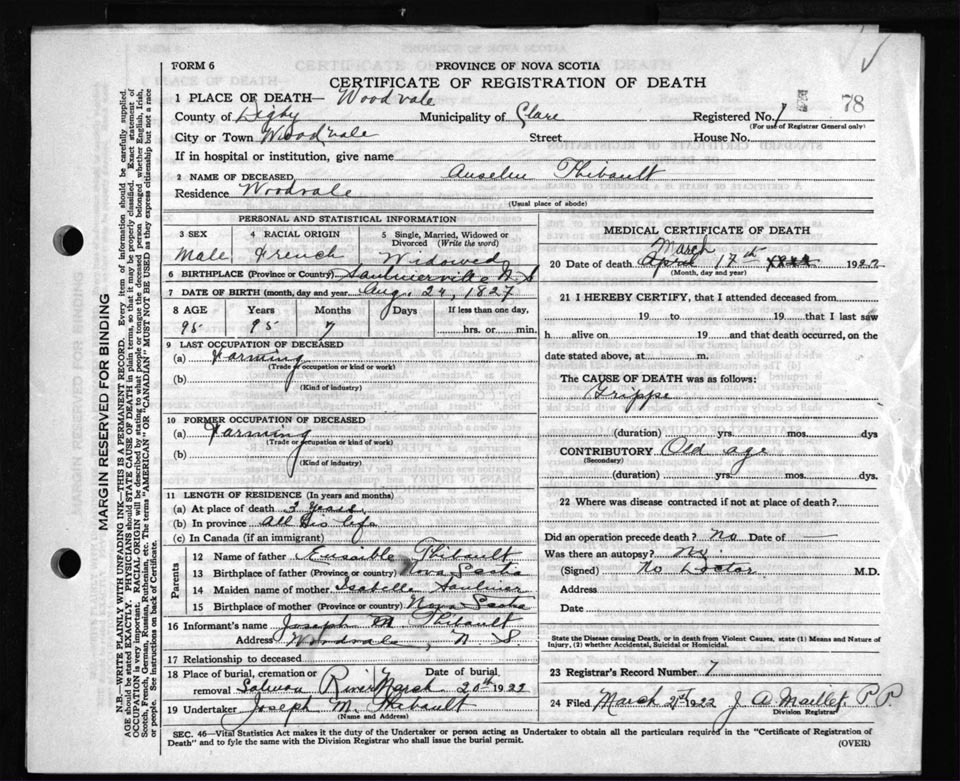 FORM 6
PROVINCE OF NOVA SCOTIA
CERTIFICATE OF REGISTRATION OF DEATH
1 PLACE OF DEATH— Woodvale
County of Digby Municipality of Clare Registered No. 78
(For use of Registrar General only)
City or Town Woodvale Street House No.
If in hospital or institution, give name
2 NAME OF DECEASED Anselm Thibault
Residence Woodvale
(Usual place of abode)
PERSONAL AND STATISTICAL INFORMATION
3 SEX 4 RACIAL ORIGIN 5 Single, Married, Widowed or Divorced (Write the word)
Male French Widowed
6 BIRTHPLACE (Province or Country) Saulnierville N S
7 DATE OF BIRTH (month, day and year Aug. 24, 1827
8 AGE Years Months Days If less than one day,
95 95 7 hrs. or min.
9 LAST OCCUPATION OF DECEASED
(a) Farming
(Trade or occupation or kind or work)
(b)
(Kind of industry)
10 FORMER OCCUPATION OF DECEASED
(a) Farming
(Trade or occupation or kind of work)
(b)
(Kind of industry)
11 LENGTH OF RESIDENCE (In years and months)
(a) At place of death 3 years
(b) In province All his life
(c) In Canada (if an immigrant)
Parents
12 Name of father Thibault
13 Birthplace of father (Province or country) Nova Scotia
14 Maiden name of mother Isabelle Saulnier
15 Birthplace of mother (Province or country) Nova Scotia
16 Informant's name Joseph M Thibault
Address Woodvale, N S.
17 Relationship to deceased
18 Place of burial, cremation or removal Salmon River Date of burial March 20th 1922
19 Undertaker Joseph M. Thibault
(Name and Address)
MEDICAL CERTIFICATE OF DEATH
March
20 Date of death April 17th 1922
(Month, day and year)
21 I HEREBY CERTIFY, that I attended deceased from
19 to 19 that I last saw
h alive on 19 and that death occurred, on the
date stated above, at m.
The CAUSE OF DEATH was as follows:
Grippe
(duration) yrs. mos. dys
CONTRIBUTORY Old age
(Secondary)
(duration) yrs. mos. dys
22 Where was disease contracted if not at place of death?
Did an operation precede death? no Date of —
Was there an autopsy? no.
(Signed) No Doctor M.D.
Address
Date
State the Disease causing Death, or in death from Violent Causes, state (1) Means and Nature of
Injury, (2) whether Accidental, Suicidal or Homicidal.
23 Registrar's Record Number 7
24 Filed March 21st 1922 J A Maillet P.P.
Division Registrar
SEC. 46—Vital Statistics Act makes it the duty of the Undertaker or person acting as Undertaker to obtain all the particulars required in the "Certificate of Registration of
Death" and to fyle the same with the Division Registrar who shall issue the burial permit.
(OVER)
MARGIN RESERVED FOR BINDING
N.B.—WRITE PLAINLY WITH UNFADING INK—THIS IS A PERMANENT RECORD. Every item of information should be carefully supplied.
AGE should be stated EXACTLY. PHYSICIANS should STATE CAUSE OF DEATH in plain terms, so that it may be properly classified. Exact statement of
OCCUPATION is very important. RACIAL ORIGIN will be described by stating to what people or tongue the deceased person belonged whether English, Irish,
Scotch, French, German, Russian, Ruthenian, etc. The terms "AMERICAN" OR "CANADIAN" MUST NOT BE USED as they express citizenship but not a race
or people. See instructions on back of Certificate.